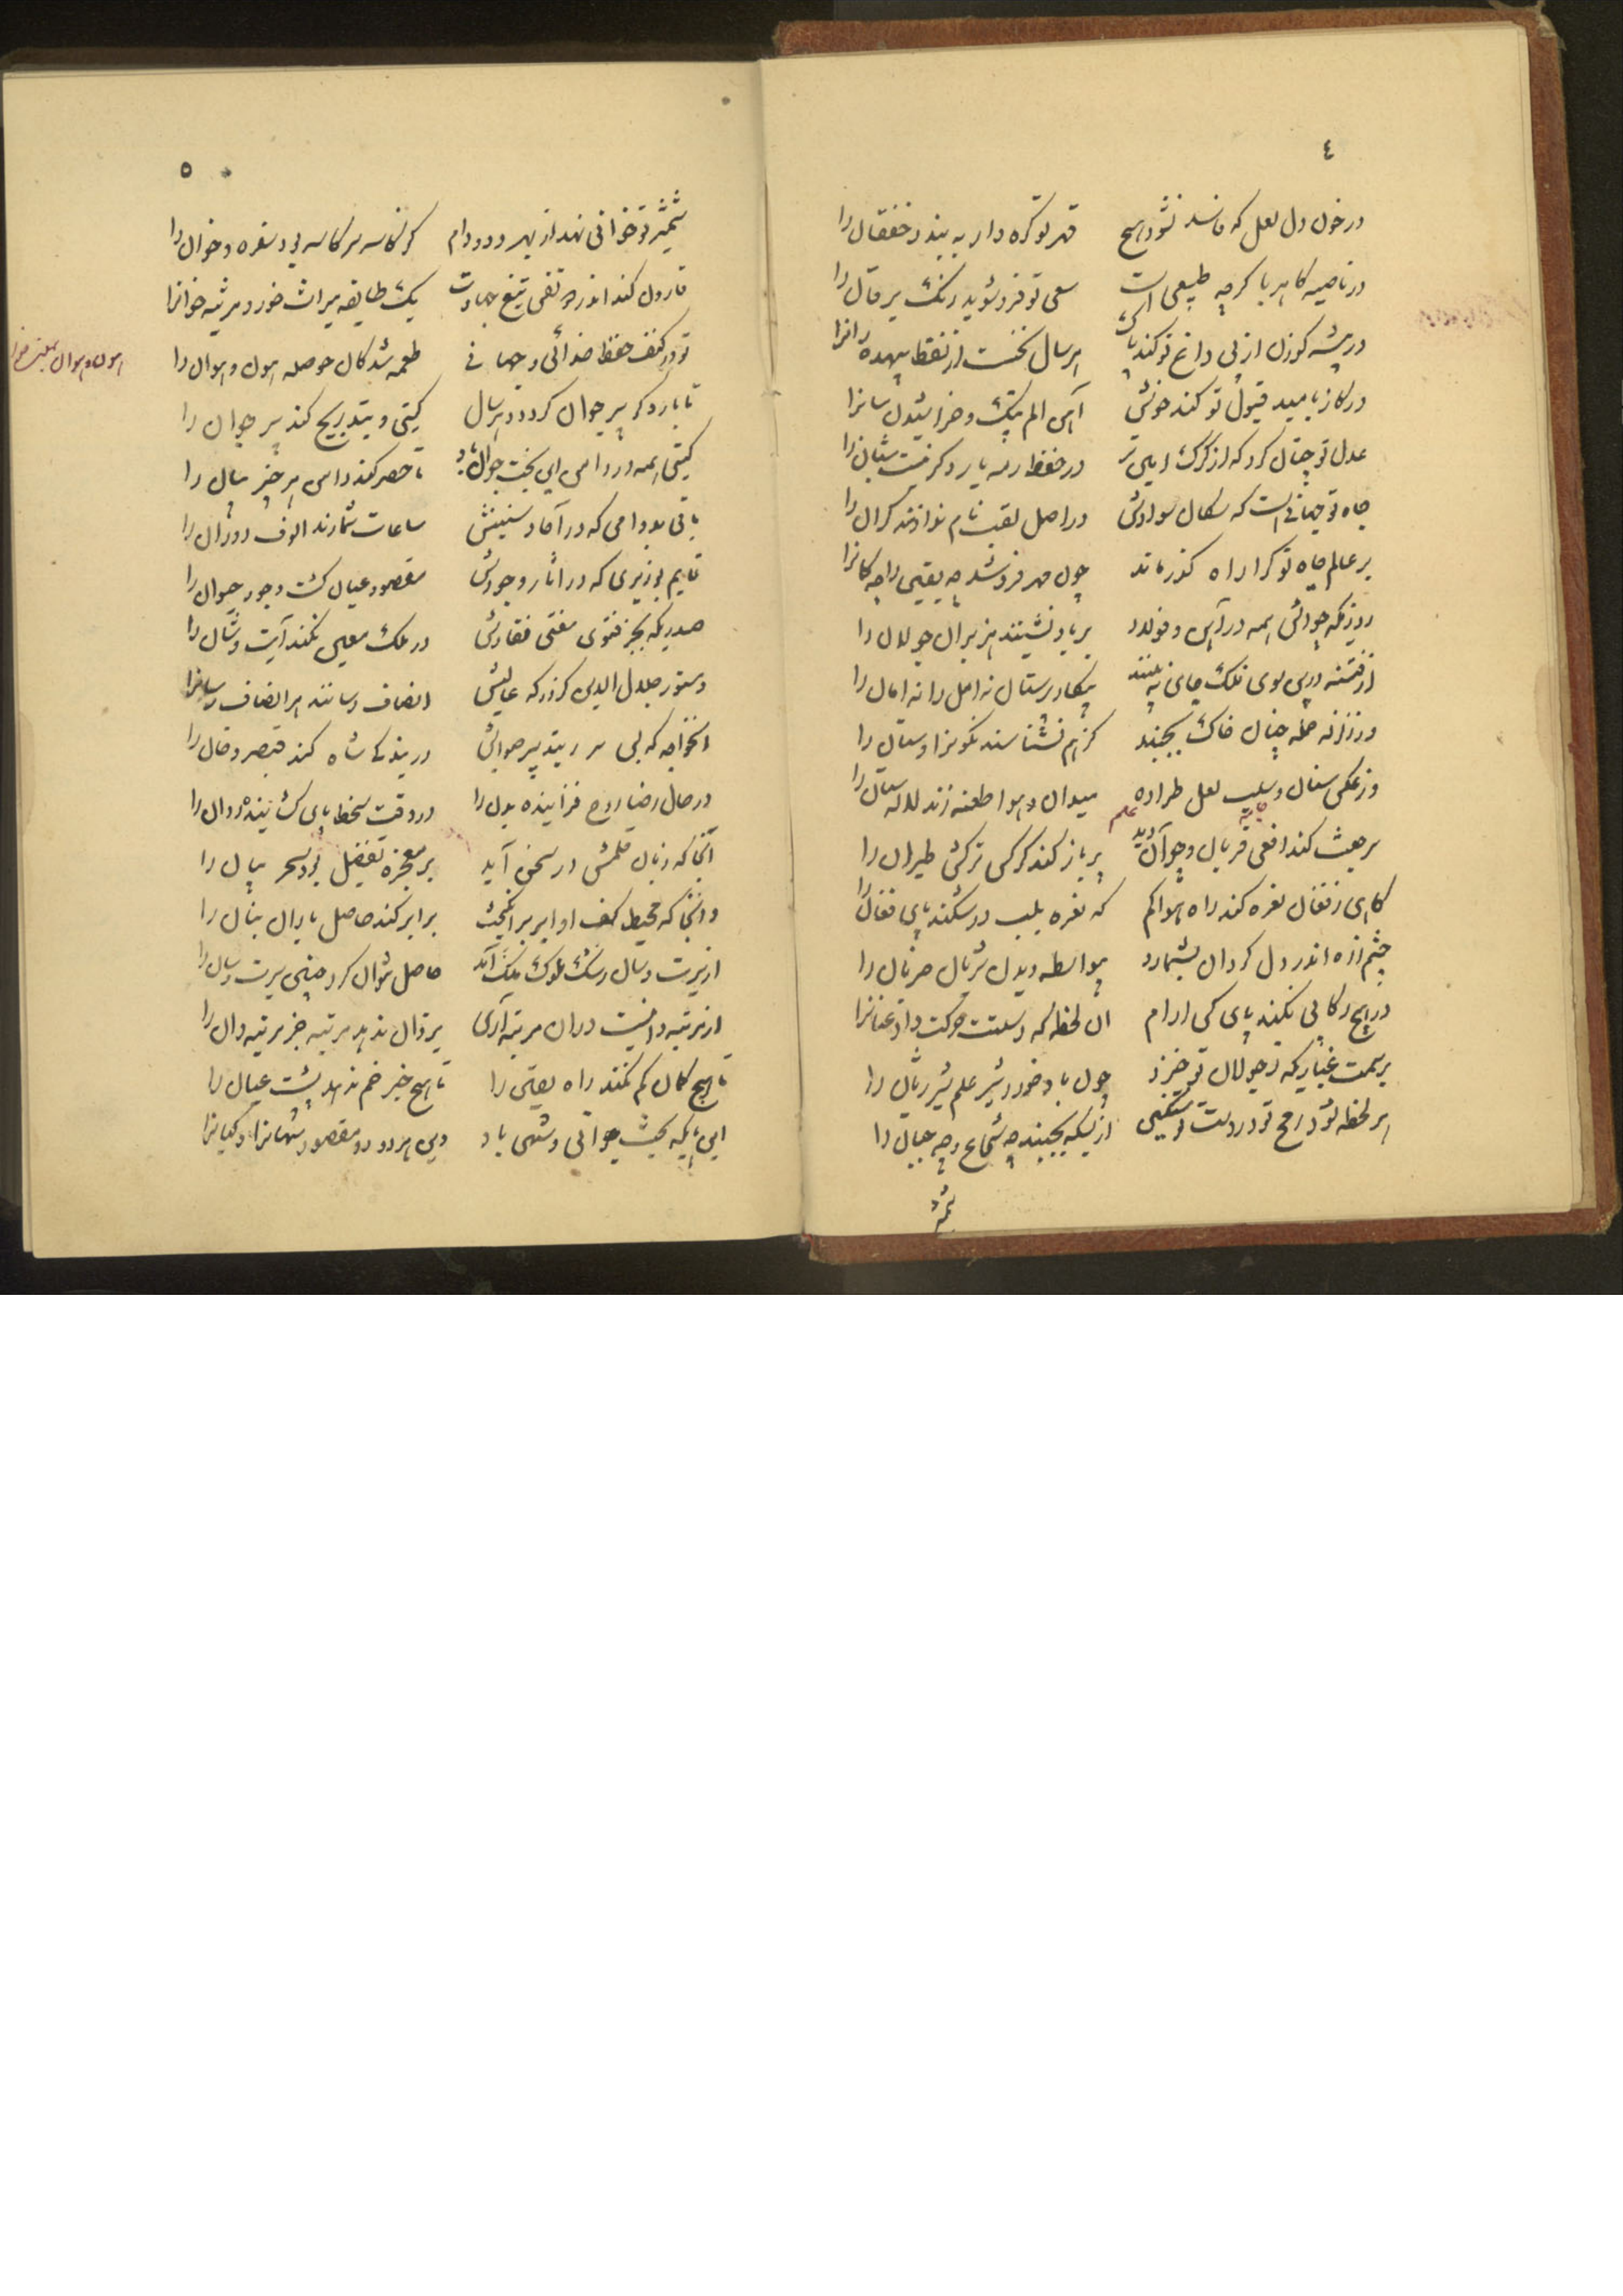 ٤
در خون دل لعل که فاسد نشود هیچ قهر تو گره وار به بندد خفقان را
در ناصیه کاهربا گرچه طبیعی است سعی تو فرو شوید رنگ یرقان را
در بیشه گوزن از پی داغ تو کند پاک هر سال نخست از نقط بیهده رانرا
در کان بامید قبول تو کند خوش آهن الم پتک و خراشیدن سانرا
عدل تو چنان کرد که از گرگ امین تر در حفظ رمه یار دگر نیست شبان را
جاه تو جهانی است که سکان سوادش در اصل لقب نام نوازند گران را
بر عالم جاه تو کرا راه گذر ماند چون مهر فرو شد چه یقین را چه گمانرا
روزیکه چو آتش همه در آهن و فولاد بر باد نشینند هزبران جولان را
از فتنه درین سوی فلک جای نه بینند پیکار پرستان نه امل را نه امان را
در زلزله حمله چنان خاک بجنبد کز هم نشناسند نگونرا وستان را
وز عکس سنان و سلب لعل طراده میدان و هوا طعنه زند لاله ستان را
علم
سر جفت کند افعی قربان و چو آن دید پر باز کند کرکس ترکش طیران را
گاهی ز فغان نعره کند راه هوا گم که نعره بلب در شکند پای فغان را
چشم زره اندر دل گردان بشمارد بیواسطه دیدن شریان ضربان را
در هیچ رکابی نکند پای کس آرام آن لحظه که دستت حرکت داد عنانرا
بر سمت غباریکه ز جولان تو خیزد چون باد خورد شیر علم شیر ژیان را
هر لحظه شود رمح تو در دست تو سلکی از بسکه بچیند چه شجاع و چه جبان را
شمشیر
٥
شمشیر تو خوانی نهد از بهر دد و دام کز کاسه سر کاسه بود سفره و خوان را
قارون کند اندر دو نفس تیغ جهادت یک طایفه میراث خور و مرثیه خوانرا
تو در کنف حفظ خدائی و جهانی طعمه شدگان حوصله هول و هوان را
تا بار دگر پیر جوان گردد و هر سال گیتی و بتدریج کند پیر جوان را
گیتی همه در دامن این بخت جوان باد تا حصر کند دامن هر چیز میان را
باقی بدوامی که در آحاد سنینش ساعات شمارند الوف دوران را
قایم بوزیری که در آثار وجودش مقصود عیان گشت وجود حیوان را
صدریکه بجز فتوی مفتی نفاذش در ملک معین نکند آیت و شان را
دستور جلال الدین کز درگه عالیش انصاف رسانند هر انصاف رسانرا
آنخواجه که بس سر بنهد پیر صوابش در بندگی شاه کند قیصر و خان را
در حال رضا روح فزاینده بدن را در وقت سخط پای گشاینده روان را
آنجا که زبان قلمش در سخن آید بر معجزه تفضیل بود سحر بیان را
و آنجا که محیط کف او ابر برانگیخت برابر کند حاصل باران بنان را
از سیرت و سان رشک ملوک ملک آمد حاصل نتوان کرد چنین سیرت و سان را
از مرتبه دانیست در آن مرتبه آری یزدان ندهد مرتبه جز مرتبه دان را
تا هیچ گمان کم نکند راه یقین را تا هیچ خبر خم ندهد پشت عیان را
این بیکه بخت جوانی و شهی باد دین هر دو دو مقصود شهانرا و کیانرا